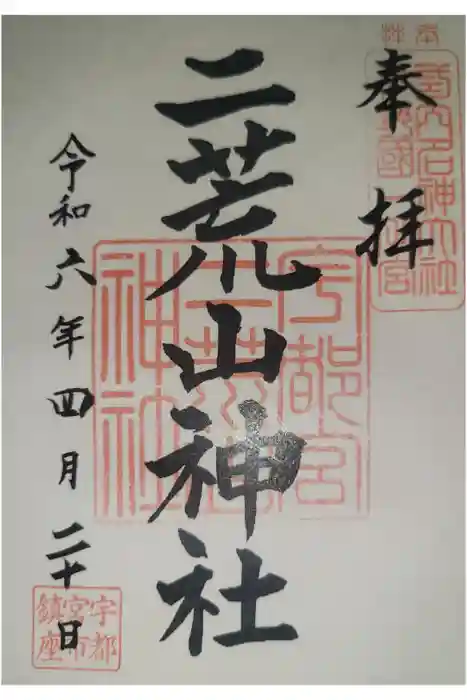 奉拝
二荒山神社
令和六年四月二十日
宇都宮
二荒山
神社
宇都
宮市
鎮座